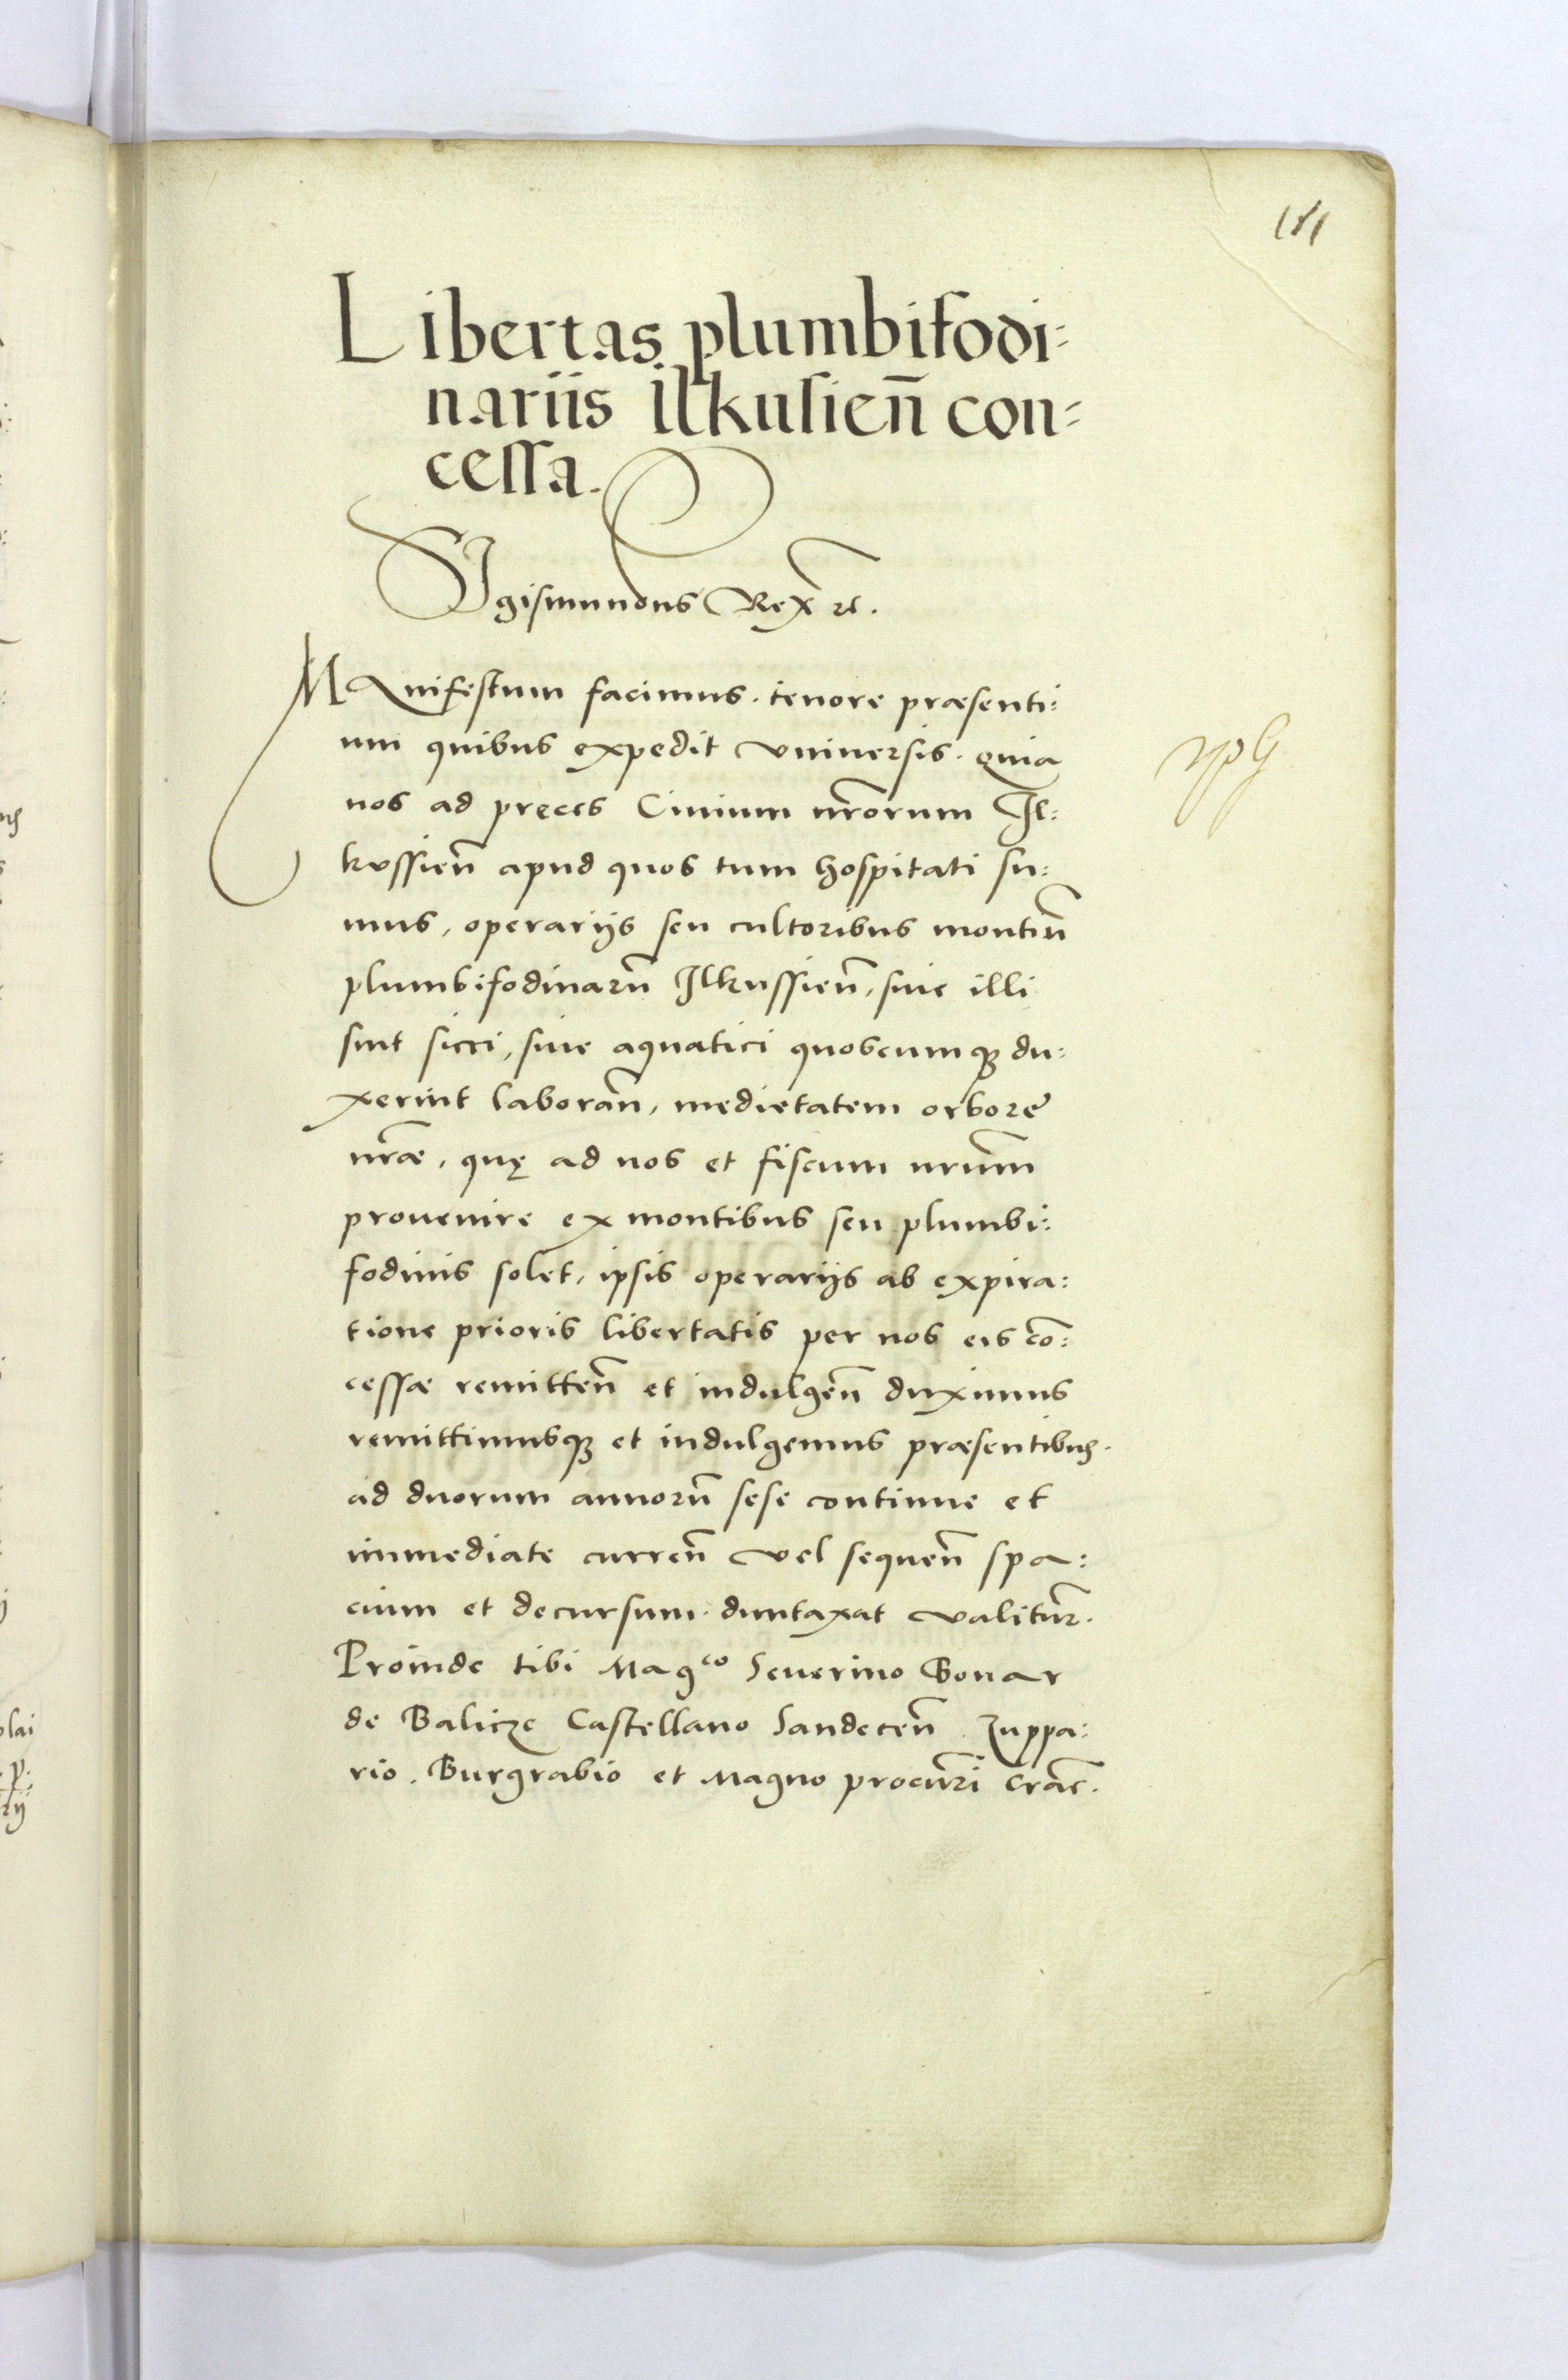 181
Libertas plumbifodi:
nariis ilkusien̄ con:
cessa.
SIgismundus Rex ꝛc.
MAnifestum facimus. tenore præsenti:
um quibus expedit vniuersis. quia
nos ad preces Ciuium nr̄orum Il:
kussien̄ apud quos tum hospitati su:
mus, operarijs seu cultoribus montiū
plumbifodinarū Ilkussien̄, siue illi
sint sicci, siue aquatici quoscumqꝫ du:
xerint laboran̄, medietatem orboræ
nr̄æ, quę ad nos et fiscum nr̄um
prouenire ex montibus seu plumbi:
fodinis solet, ipsis operarijs ab expira:
tione prioris libertatis per nos eis cō:
cessæ remitten̄ et indulgen̄ duximus
remittimusqꝫ et indulgemus præsentibus.
ad duorum annorū sese continue et
immediate curren̄ vel sequen̄ spa:
cium et decursum. duntaxat valitur̄.
Proinde tibi Mag^co Seuerino Bonar
de Balicze Castellano Sandecen̄. Zuppa:
rio. Burgrabio et Magno procur̄ri Crac̄.